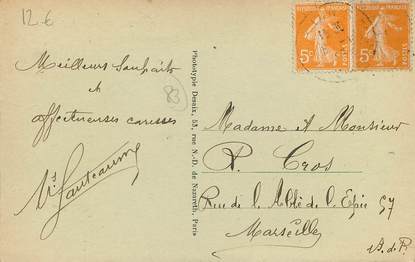 12.€
83
Meilleurs Souhaits
et
affectueuses caresses
Phototypie Desaix, 53, rue N.-D. de Nazareth, Paris
Madame et Monsieur
P. Cros
Rue de l'Abbé de l'Epée 57
Marseille
B. d. R.
5c
POSTES
5c
POSTES